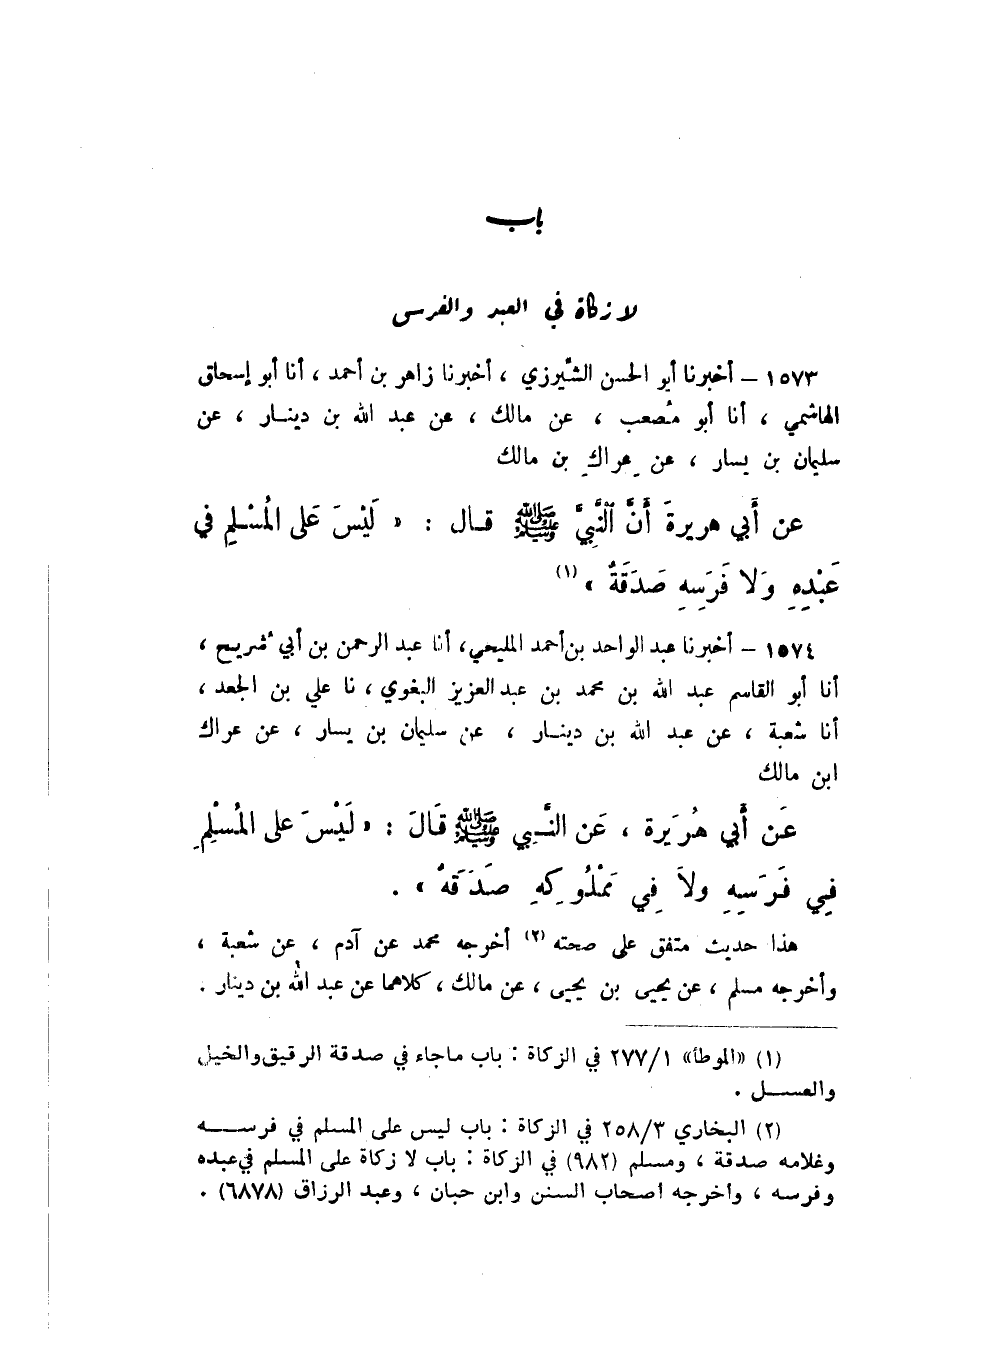 باب
لا زكاة في العبد والفرس
١٥٧٣ – أخبرنا أبو الحسن الشيرزي ، أخبرنا زاهر بن أحمد ، أنا أبو إسحاق
الهاشمي ، أنا أبو مصعب ، عن مالك ، عن عبد الله بن دينــار ، عن
سليمان بن يسار ، عن عراك بن مالك
عن أبي هريرةَ أَنَّ النَّبيَّ ﷺ قــال : « لَيْسَ عَلى المُسْلِمِ في
عَبْدِهِ وَلا فَرَسِهِ صَدَقَةٌ » (١)
١٥٧٤ – أخبرنا عبد الواحد بن أحمد المليحي، أنا عبد الرحمن بن أبي شريح ،
أنا أبو القاسم عبد الله بن محمد بن عبد العزيز البغوي ، نا علي بن الجعد ،
أنا شعبة ، عن عبد الله بن دينــار ، عن سليمان بن يسار ، عن عراك
ابن مالك
عَن أَبي هُرَيرة ، عَن النَّــبِي ﷺ قَالَ : « لَيْسَ على المُسْلِمِ
فِي فَرَسِهِ ولاَ فِي مَمْلُوكِهِ صَدَقَةٌ » .
هذا حديث متفق على صحته (٢) أخرجه محمد عن آدم ، عن شعبة ،
وأخرجه مسلم ، عن يحيى بن يحيى ، عن مالك ، كلاهما عن عبد الله بن دينار .
(١) «الموطأ» ٢٧٧/١ في الزكاة : باب ماجاء في صدقة الرقيق والخيل
والعســـل .
(٢) البخاري ٢٥٨/٣ في الزكاة : باب ليس على المسلم في فرســـه
وغلامه صدقة ، ومسلم (٩٨٢) في الزكاة : باب لا زكاة على المسلم في عبده
وفرسه ، وأخرجه أصحاب السنن وابن حبان ، وعبد الرزاق (٦٨٧٨) .